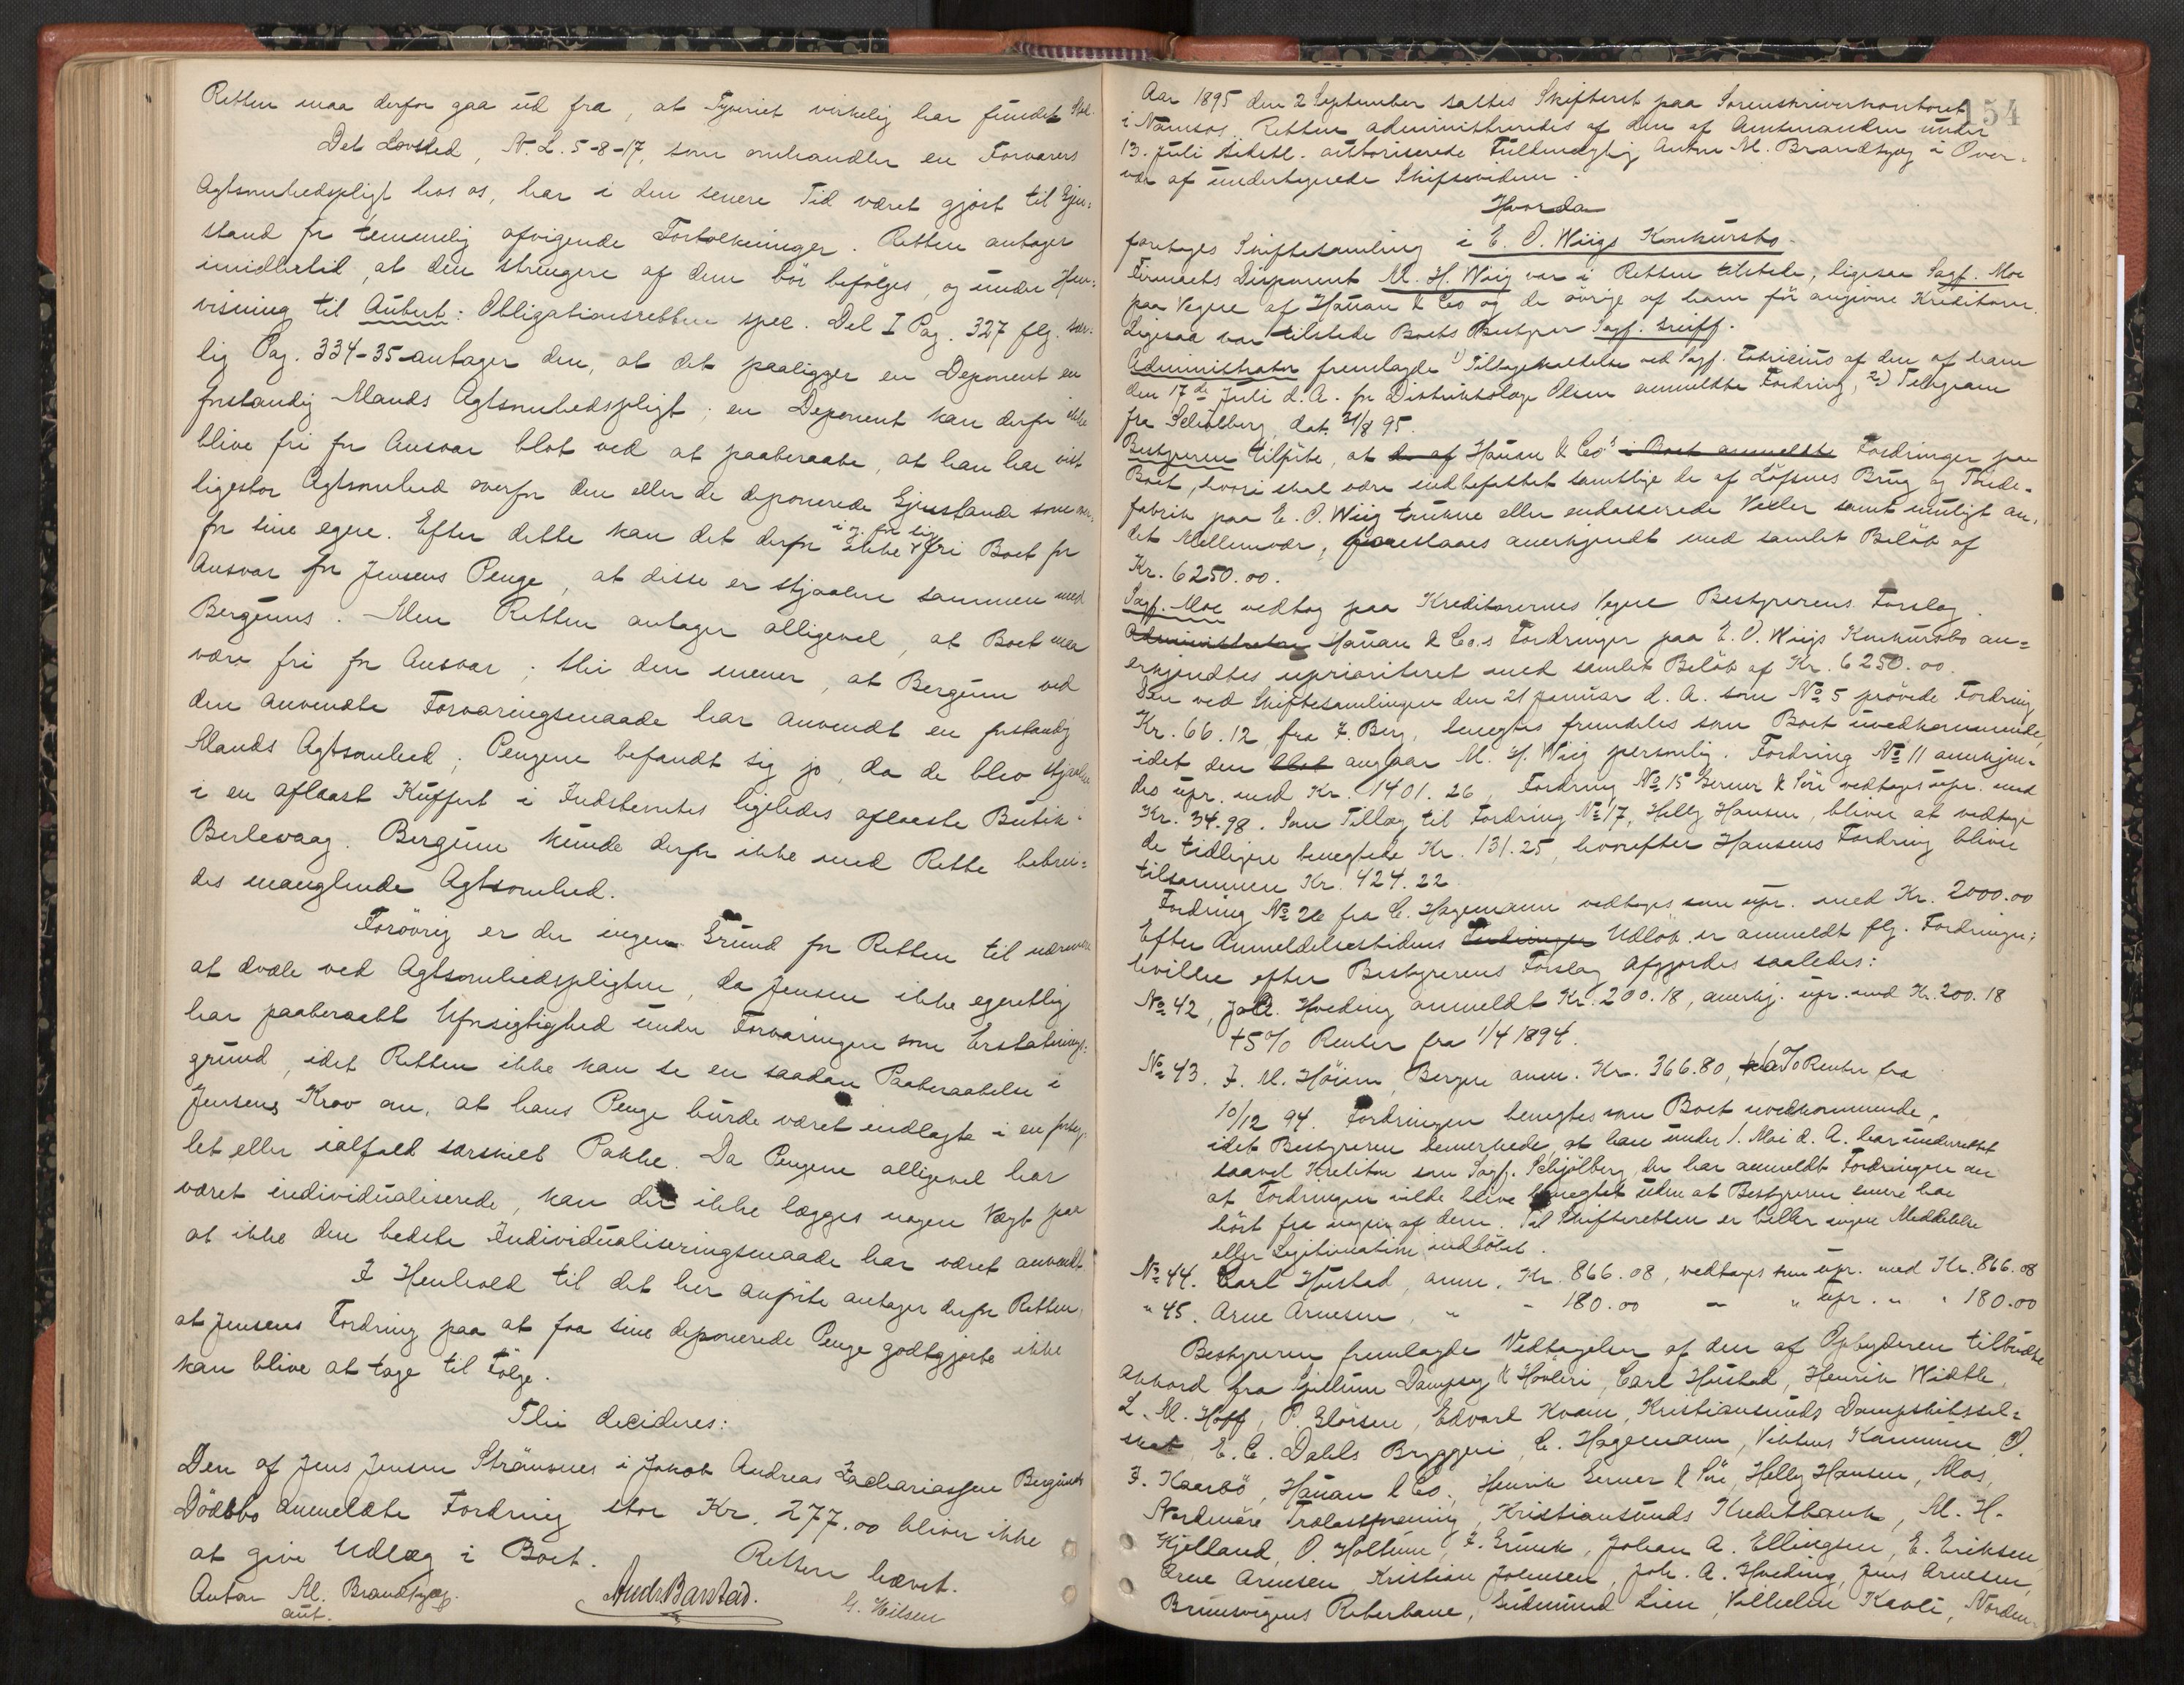 Retten maa derfor gaa ud fra, at Tyveriet virkelig har fundet Sted.
Det Lovsted, N. L. 5-8-17, som omhandler en Forvarers
Agtsomhedspligt hos os, har i den senere Tid været gjort til Gjen-
stand for temmelig afvigende Fortolkninger. Retten antager
imidlertid, at den strengere af dem bör befölges, og under Hen-
visning til Aubert: Obligationsretten spec. Del I Pag. 327 flg. sær-
lig Pag. 334-35 antager den, at det paaligger en Deponent en
forstandig Mands Agtsomhedspligt; en Deponent kan derfor ikke
blive fri for Ansvar blot ved at paaberaabe, at han har vist
ligestor Agtsomhed overfor den eller de deponerede Gjenstande som over-
for sine egne. Efter dette kan det derfor ikke i og for sig fri Boet for
Ansvar for Jensens Penge, at disse er stjaalne sammen med
Bergums. Men Retten antager alligevel, at Boet maa
være fri for Ansvar; thi den mener, at Bergum ved
den anvendte Forvaringsmaade har anvendt en forstandig
Mands Agtsomhed; Pengene befandt sig jo, da de blev stjaalne
i en aflaast Kuffert i Indstevntes ligeledes aflaaste Butik i
Berlevaag. Bergum kunde derfor ikke med Rette bebrei-
des manglende Agtsomhed.
Forövrig er der ingen Grund for Retten til nærmere
at dvæle ved Agtsomhedspligten, da Jensen ikke egentlig
har paaberaabt Uforsigtighed under Forvaringen som Erstatnings-
grund, idet Retten ikke kan se en saadan Paaberaabelse i
Jensens Krav om, at hans Penge burde været indlagte i en forseg-
let eller ialfald særskilt Pakke. Da Pengene alligevel har
været individualiserede, kan der ikke lægges nogen Vægt paa
at ikke den bedste Individualiseringsmaade har været anvendt.
I Henhold til det her anförte antager derfor Retten,
at Jensens Fordring paa at faa sine deponerede Penge godtgjorte ikke
kan blive at tage til Fölge.
Thi decideres:
Den af Jens Jensen Strömsnes i Jakob Andreas Zachariassen Bergums
Dödsbo anmeldte Fordring stor Kr. 277.00 bliver ikke
at give Udlæg i Boet.
Retten hævet.
Anton M. Brandtzæg
aut.
Andr Barstad.
G. Nilsen
154
Aar 1895 den 2 September sattes Skifteret paa Sorenskriverkontoret
i Namsos. Retten administreredes af den af Amtmanden under
13. Juli sidstl. authoriserede Fuldmægtig Anton M. Brandtzæg i Over-
vær af undertegnede Skiftevidner.
Hvorda
foretoges Skiftesamling i E. O. Wiigs Konkursbo.
Firmaets Disponent M. H. Wiig var i Retten tilstede, ligesaa Sagf. Moe
paa Vegne af Hauan & Co og de övrige af ham för angivne Kreditorer.
Ligesaa var tilstede Boets Bestyrer Sagf. Greiff.
Administrator fremlagde 1) Tilbagekaldelse ved Sagf. Fabricius af den af ham
den 17de Juli d. A. for Distriktslæge Olsen anmeldte Fordring, 2) Telegram
fra Schiölberg, dat. 31/8 95.
Bestyreren tilförte, at de af Hauan & Co's i Boet anmeldte Fordringer paa
Boet, hvori skal være indbefattet samtlige de af Löfsnes Brug og Tønde-
fabrik paa E. O. Wiig trukne eller endosserede Vexler samt muligt an-
det Mellemvær, foreslaaes anerkjendt med samlet Belöb af
Kr. 6250.00.
Sagf. Moe vedtog paa Kreditorernes Vegne Bestyrerens Forslag.
Administrator Hauan & Co.s Fordringer paa E. O. Wiigs Konkursbo an-
erkjendtes uprioriteret med samlet Belöb af Kr. 6250.00.
Den ved Skiftesamlingen den 21 Januar d. A. som No 5 prövede Fordring
Kr. 66.12 fra F. Berg, benegtes fremdeles som Boet uvedkommende,
idet den blot angaar M. H. Wiig personlig. Fordring No 11 anerkjen-
des upr. med Kr. 1401.26, Fordring No 15 Gerner & Sön vedtages upr. med
Kr. 34.98. Som Tillæg til Fordring No 17, Helly Hansen, bliver at vedtage
de tidligere benegtede Kr. 131.25, hvorefter Hansens Fordring bliver
tilsammen Kr. 424.22.
Fordring No 26 fra C. Hagemann vedtages som upr. med Kr. 2000.00
Efter Anmeldelsestidens Udlöb er anmeldt flg. Fordringer,
hvilke efter Bestyrerens Forslag afgjordes saaledes:
No 42, Joh. A. Hveding anmeldt Kr. 200.18, anerkj. upr. med Kr. 200.18
+ 5% Renter fra 1/4 1894.
No 43. F. M. Höien, Bergen anm. Kr. 366.80, + 6% Renter fra
10/12 94. Fordringen benegtes som Boet uvedkommende,
idet Bestyreren bemerkede, at han under 1. Mai d. A. har underrettet
saavel Kreditor som Sagf. Schjölberg, der har anmeldt Fordringen om
at Fordringen vilde blive benegtet uden at Bestyreren senere har
hört fra nogen af dem. Til Skifteretten er heller ingen Meddelelse
eller Legitimation indlöbet.
No 44. Carl Hustad, anm. Kr. 866.08, vedtages som upr. med Kr. 866.08
" 45. Arne Arnesen, " - 180.00 - " upr. " " 180.00
Bestyreren fremlagde Vedtagelser af den af Opbyderen tilbudte
Akkord fra Gjellum Dampsag & Hövleri, Carl Hustad, Henrik Widthe,
L. M. Hoff, P. Elörsen, Edvard Kvam, Kristiansunds Dampskibssel-
skab, E. C. Dahls Bryggeri, C. Hagemann, Viktens Kommune, O.
F. Kaarbö, Hauan & Co., Henrik Gerner & Sön, Helly Hansen, Mos,
Nordmöre Trælastforening, Kristiansunds Kreditbank, M. H.
Kjelland, O. Holtum, F. Grunck, Johan A. Ellingsen, E. Eriksen,
Arne Arnesen, Kristian Johnsen, Joh. A. Hveding, Jens Arnesen,
Brunsvigens Reberbane, Gudmund Lien, Vilhelm Kavli, Norden-